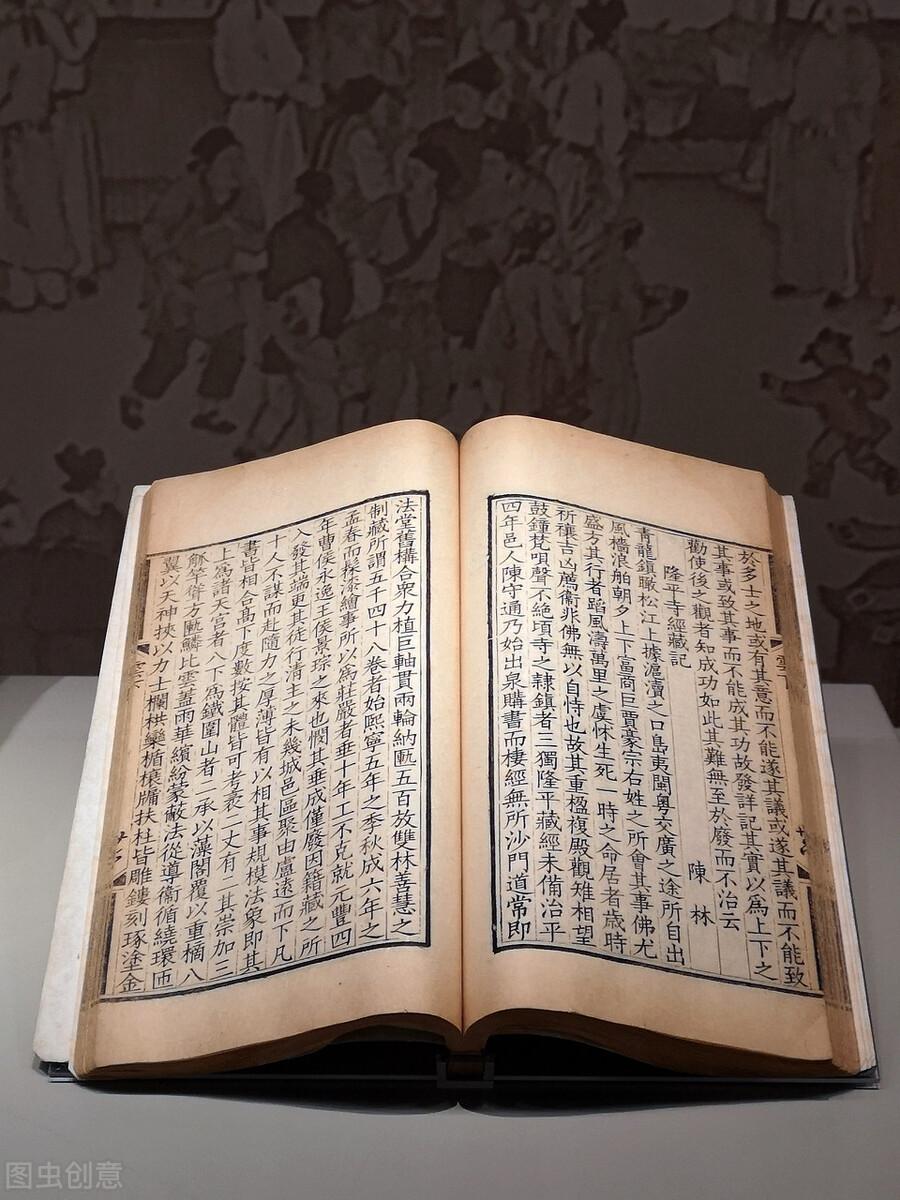 於多士之地或有其意而不能遂其議或遂其議而不能致
其事或致其事而不能成其功故發詳記其實以爲上下之
勸使後之觀者知成功如此其難無至於廢而不治云
隆平寺經藏記 陳林
青龍鎮瞰松江上據滬瀆之口島夷閩粵交廣之途所自出
風檣浪舶朝夕上下富商巨賈豪宗右姓之所會其事佛尤
盛方其行者蹈風濤萬里之虞怵生死一時之命居者歲時
祈禳吉凶薦衞兆佛無以自恃也故其重楹複殿觀雉相望
鼓鐘梵唄聲不絕頃寺之隸鎮者三獨隆平藏經未備治平
四年邑人陳守通乃始出泉購書而棲經無所沙門道常即
法堂舊構合衆力植巨軸貫兩輪納匭五百放雙林善慧之
制藏所謂五千四十八卷者始熙寧五年之季秋成六年之
孟春而髹漆繪事所以爲莊嚴者垂十年工不克就元豐四
年曹侯永逸王侯景琮之來也憫其垂成僅廢因籍藏之所
入發其端更其徒行清主之未幾城邑區聚由盧遠而下凡
十人不謀而赴隨力之厚薄皆有以相其事規模法象即其
書皆相合高下度數按其體皆可考袤二丈有二其崇加三
上爲諸天宮者八下爲鐵圍山者二承以藻閣覆以重橑八
觚竿聳方匭鱗比雲蓋雨華繽紛蒙蔽法從導衞循繞環匝
翼以天神挾以力士欄栱欒楯榱牖扶杜皆雕鏤刻琢塗金
雲下
图虫创意